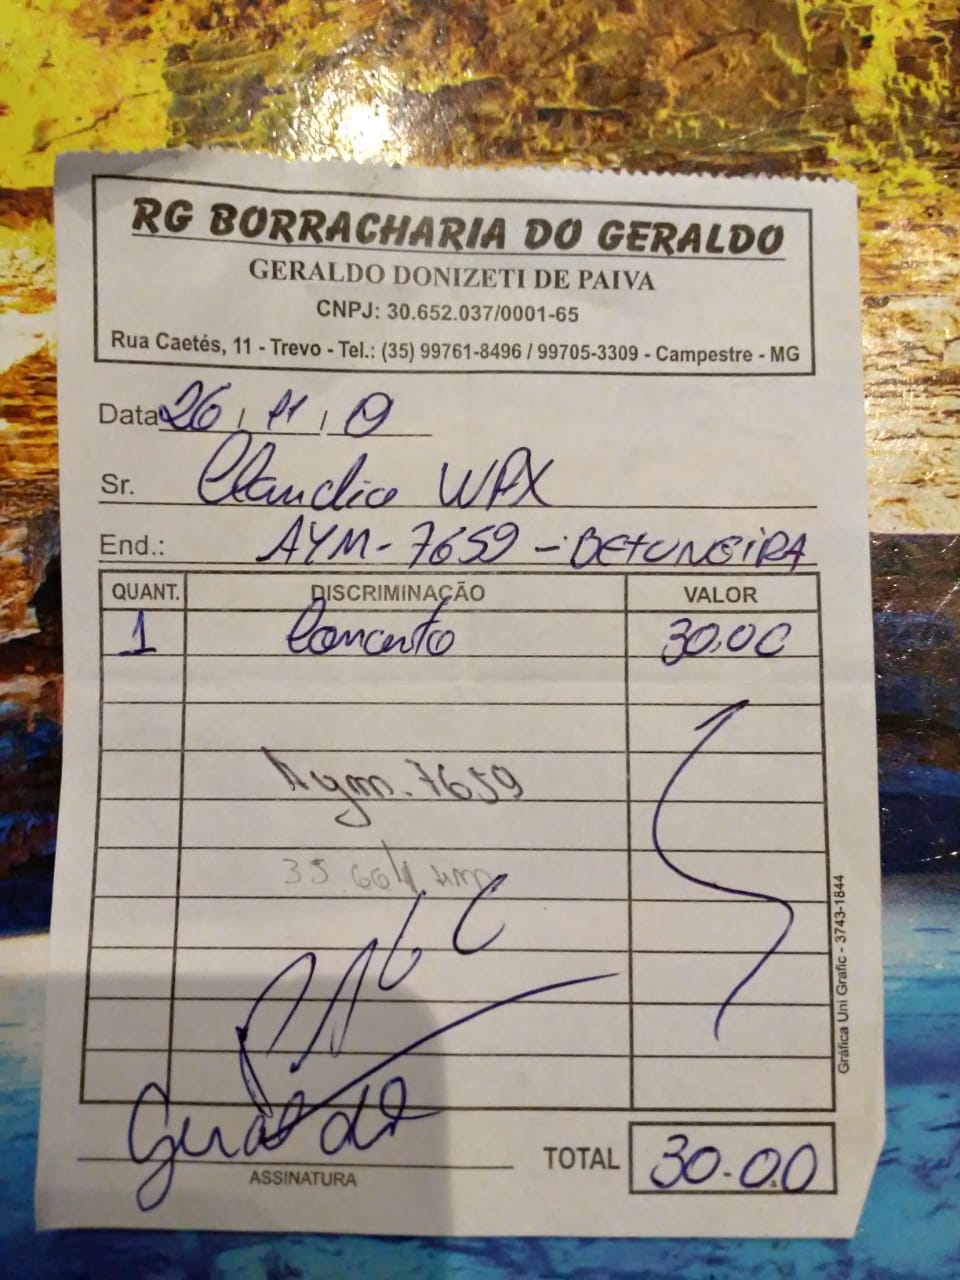 RG BORRACHARIA DO GERALDO
GERALDO DONIZETI DE PAIVA
CNPJ: 30.652.037/0001-65
Rua Caetés, 11 - Trevo - Tel.: (35) 99761-8496 / 99705-3309 - Campestre - MG
Data 26 / 11 / 
Sr. Claudio WPX
End.: AYM-7659 - BETUNEIRA
QUANT. DISCRIMINAÇÃO VALOR
1 Concerto 30.00
Aym-7659
35.664 km
PAGO
Geraldo
ASSINATURA
TOTAL 30.00
Gráfica Uni Grafic - 3743-1844